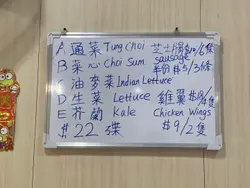 A 通菜 Tung Choi 芝士腸 $10/6隻
B 菜心 Choi Sum sausage
半份 $5/3條
C 油麥菜 Indian Lettuce
D 生菜 Lettuce 雞翼 $18/4隻
E 芥蘭 Kale Chicken Wings
$22 碟 $9/2隻